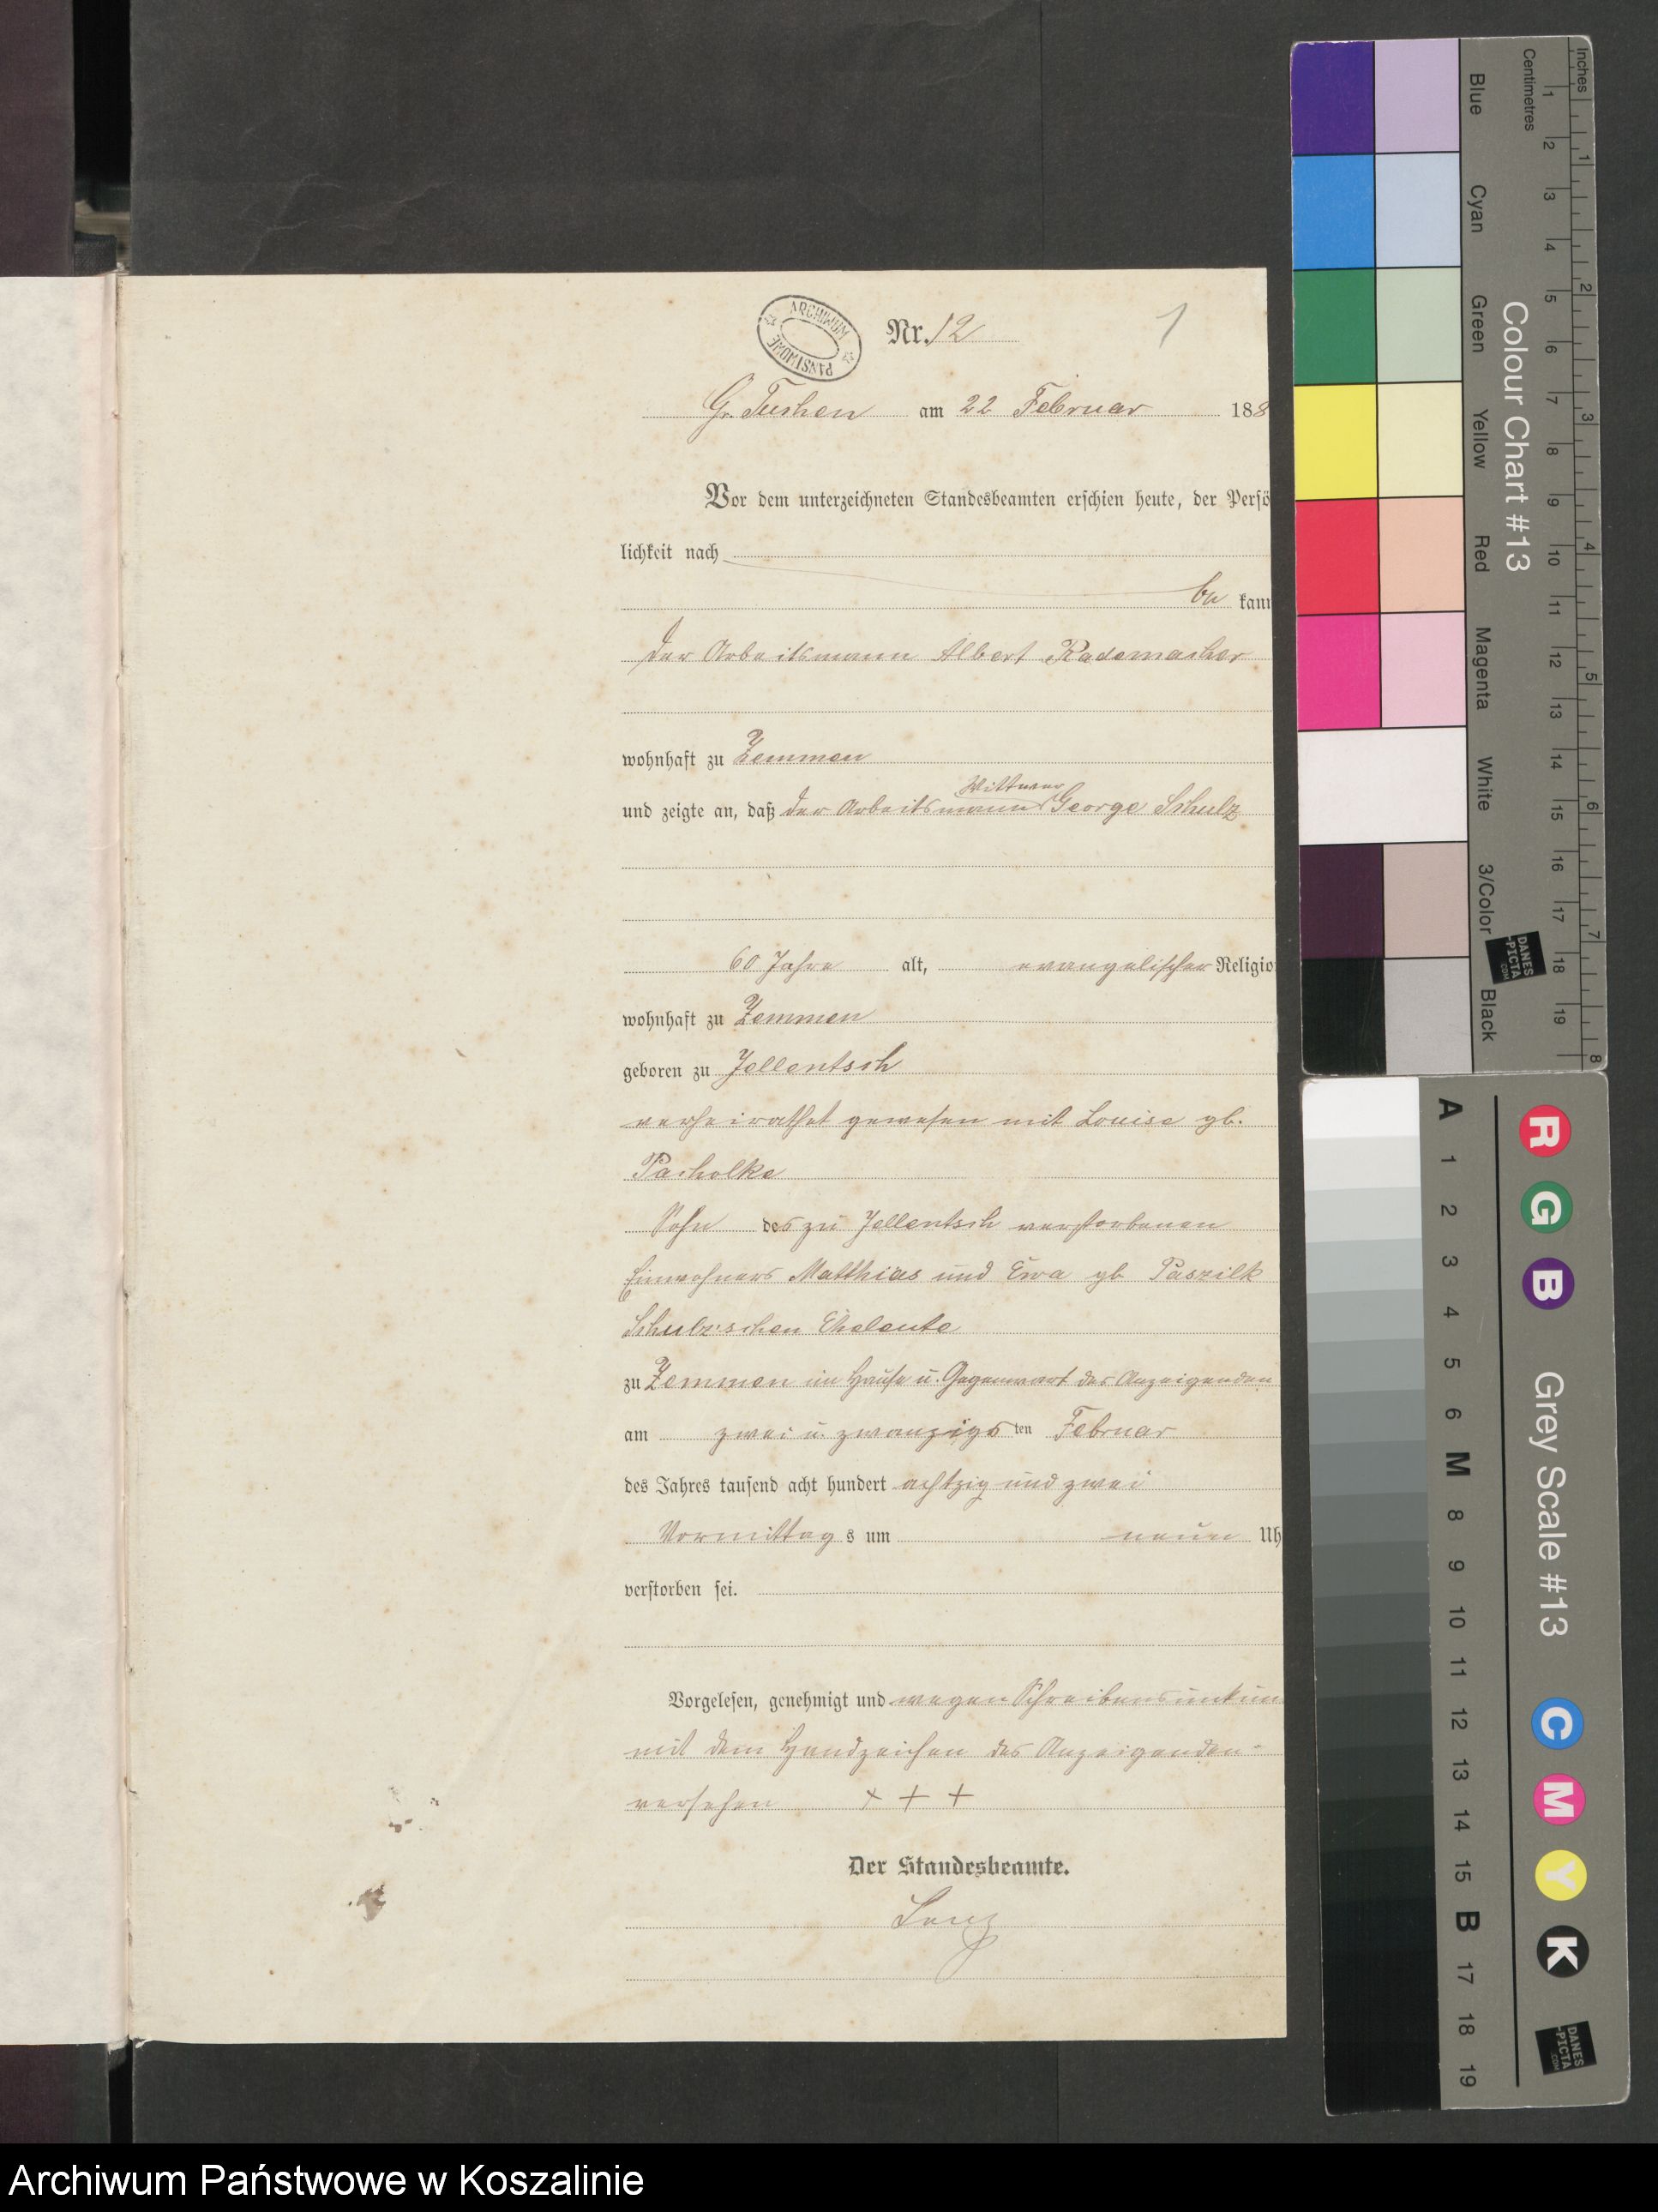 ARCHIWUM PAŃSTWOWE
Nr. 12
1
Gr. Tuchen am 22 Februar 188
Vor dem unterzeichneten Standesbeamten erschien heute, der Persö
lichkeit nach
be kann
der Arbeitsmann Albert Rademacher
wohnhaft zu Zemmen
Wittwer
und zeigte an, daß der Arbeitsmann George Schulz
60 Jahre alt, evangelischer Religio
wohnhaft zu Zemmen
geboren zu Jellentsch
verheirathet gewesen mit Louise gb.
Pacholke
Sohn des zu Jellentsch verstorbenen
Einwohners Matthias und Eva gb Paszilk
Schulz'schen Eheleute
zu Zemmen im Hause u. Gegenwart des Anzeigenden
am zwei u. zwanzigs ten Februar
des Jahres tausend acht hundert achtzig und zwei
Vormittag s um neun Uh
verstorben sei.
Vorgelesen, genehmigt und wegen Schreibensunkun
mit dem Handzeichen des Anzeigenden
versehen + + +
Der Standesbeamte.
Lenz
Archiwum Państwowe w Koszalinie
Inches
Centimetres
1 2 3 4 5 6 7 8 9 10 11 12 13 14 15 16 17 18 19
1 2 3 4 5 6 7 8
Colour Chart #13
Blue
Cyan
Green
Yellow
Red
Magenta
White
3/Color
Black
DANES
-PICTA
.COM
Grey Scale #13
A 1 2 3 4 5 6 M 8 9 10 11 12 13 14 15 B 17 18 19
R
G
B
C
M
Y
K
DANES
-PICTA
.COM